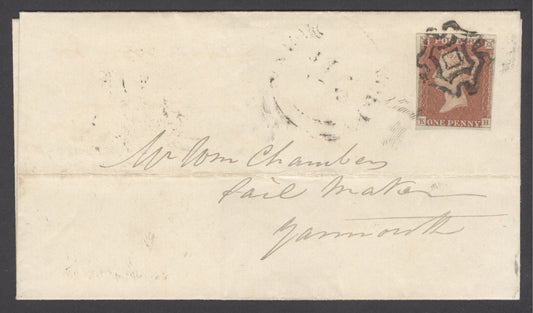 POSTAGE
ONE PENNY
H
Mr Wm Chambers
Sail Maker
Yarmouth